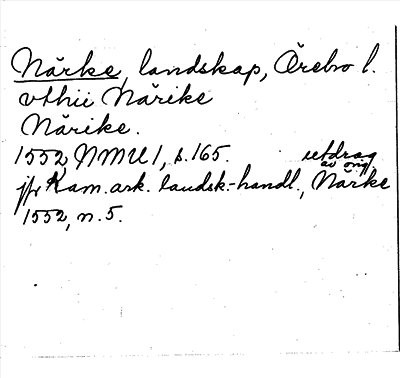 Närke, landskap, Örebro l.
vthii Närike
Närike.
1552 NMU 1, s. 165. utdrag av orig.
jfr Kam. ark. landsk.-handl., Närke
1552, n. 5.